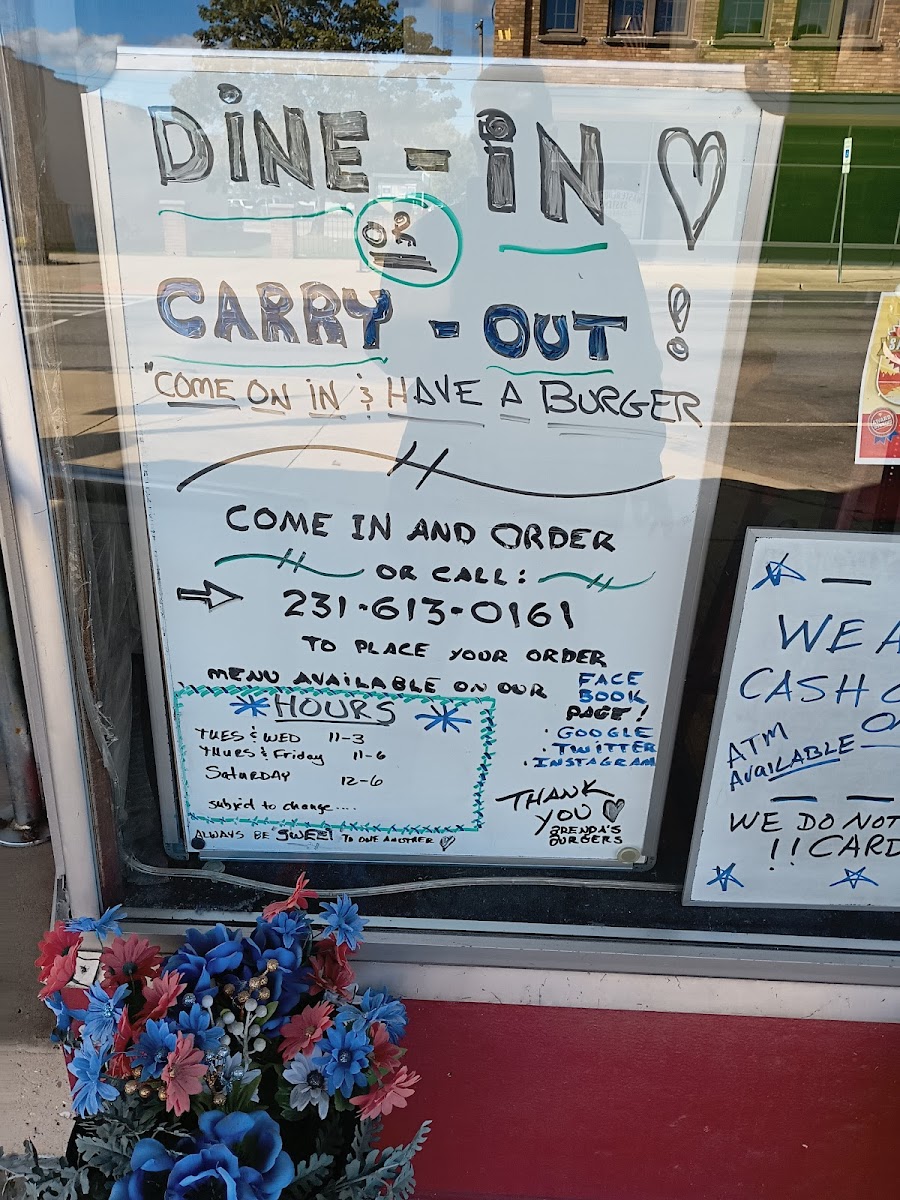 DINE - IN
OR
CARRY - OUT !
"COME ON IN & HAVE A BURGER
COME IN AND ORDER
OR CALL:
231-613-0161
TO PLACE YOUR ORDER
MENU AVAILABLE ON OUR FACE
BOOK
PAGE!
· GOOGLE
· TWITTER
· INSTAGRAM
HOURS
TUES & WED 11-3
THURS & Friday 11-6
SATURDAY 12-6
subject to change....
ALWAYS BE SWEET TO ONE ANOTHER
THANK
YOU
BRENDA'S
BURGERS
WE A
CASH O
ATM
AVAILABLE
WE DO NOT
!! CARD